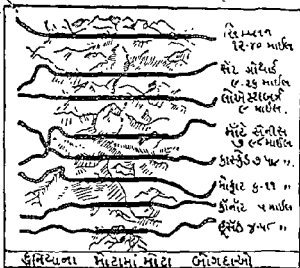 સિમ્પ્લન
૧૨-૪૦ માઈલ
સેંટ ગોથાર્ડ
૯-૨૬ માઈલ
લોએટશબર્ગ
૯ માઈલ.
મોંટ સેનીસ
૭ ૯૮ માઈલ
કાસ્કેડ ૭ ૫૮ ".
મોફાટ ૬-૧૧ "
કોનોટ ૫ માઈલ
હુસેક ૪.૫૮ ".
દુનિયાના મોટામાં મોટા બોગદાઓ